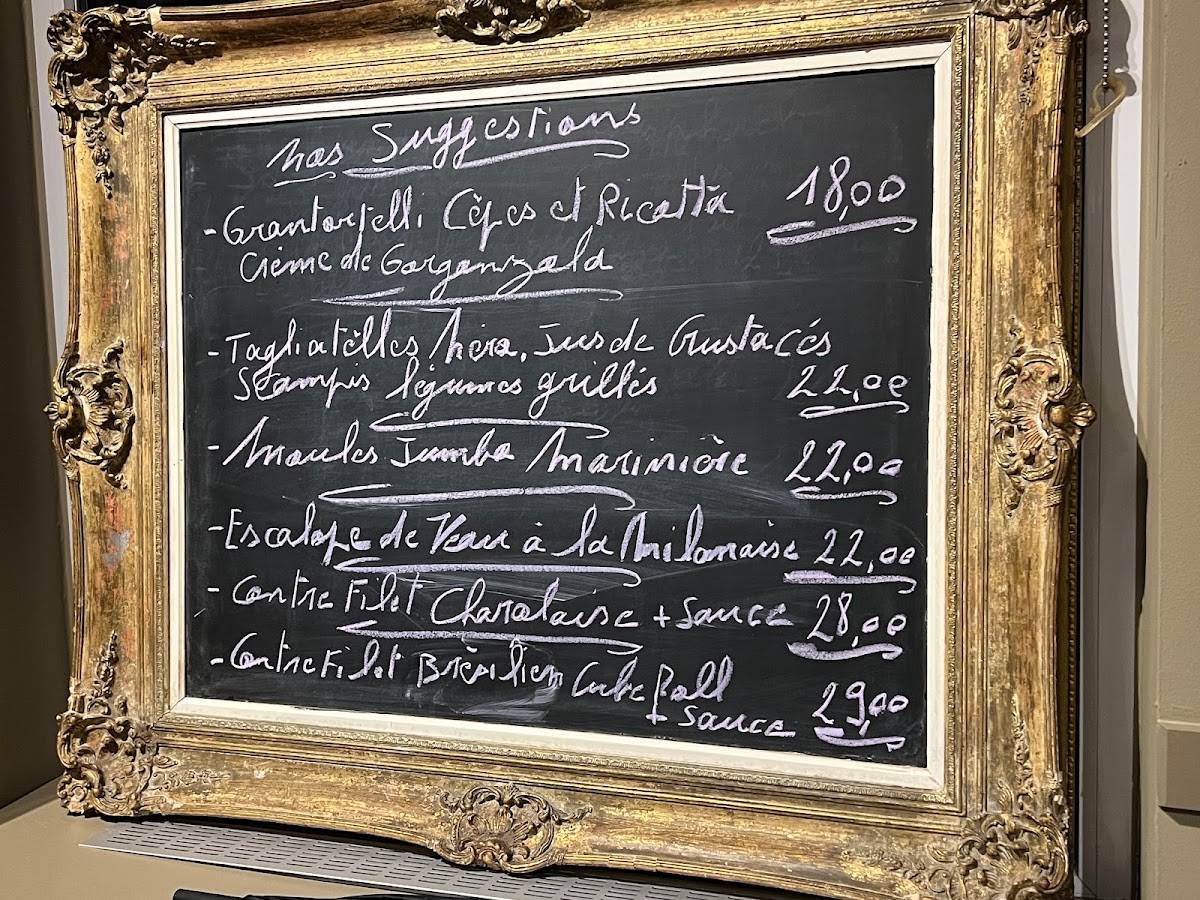 nos Suggestions
- Grantortelli Cèpes et Ricotta 18,00
Crème de Gorgonzola
- Tagliatèlles Néra, Jus de Crustacés
Scampis légumes grillés 22,00
- Moules Jumbo Marinière 22,00
- Escalope de Veau à la Milanaise 22,00
- Contre Filet Charolaise + Sauce 28,00
- Contre Filet Brèsilien Cube Roll
+ Sauce 29,00